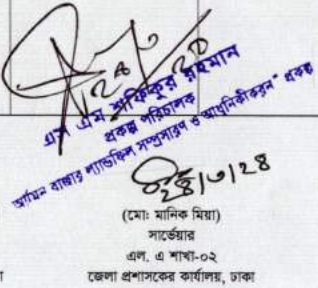 এস এম শফিকুর রহমান
প্রকল্প পরিচালক
আমিন বাজার ল্যান্ডফিল সম্প্রসারণ ও আধুনিকীকরন" প্রকল্প
(মো: মানিক মিয়া)
সার্ভেয়ার
এল. এ শাখা-০২
জেলা প্রশাসকের কার্যালয়, ঢাকা